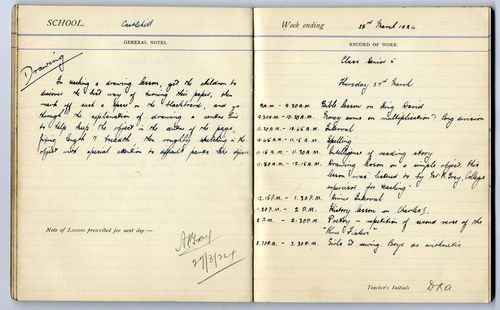 SCHOOL. Castlehill
GENERAL NOTES.
Drawing
In teaching a drawing lesson, get the children to
discover the best way of turning their paper, then
mark off such a space on the blackboard, and go
through the explanation of drawing a centre line
to help keep the object in the centre of the page,
fixing length & breadth then roughly sketching in the
object with special attention to difficult parts like
Note of Lessons prescribed for next day:—
27/3/24
Week ending 28th March 1924
RECORD OF WORK.
Class Senior 5
Thursday 27th March
9 A.M. - 9.30 A.M. Bible lesson on King David
9.30 A.M. - 10.30 A.M. Money sums on multiplication & long division
10.30 A.M. - 10.45 A.M. Interval
10.45 A.M. - 11.15 A.M. Spelling
11.15 A.M. - 11.30 A.M. Intelligence of reading story
11.30 A.M. - 12.15 P.M. Drawing lesson on a simple object. This
lesson was listened to by Mr. Gray, College
supervisor for teaching.
12.15 P.M. - 1.30 P.M. Dinner Interval
1.30 P.M. - 2 P.M. History lesson on Charles I.
2 P.M. - 2.30 P.M. Poetry - repetition of second verse of the
"Three Fishers"
2.30 P.M. - 3.30 P.M. Girls at sewing Boys at arithmetic
Teacher's Initials DKA